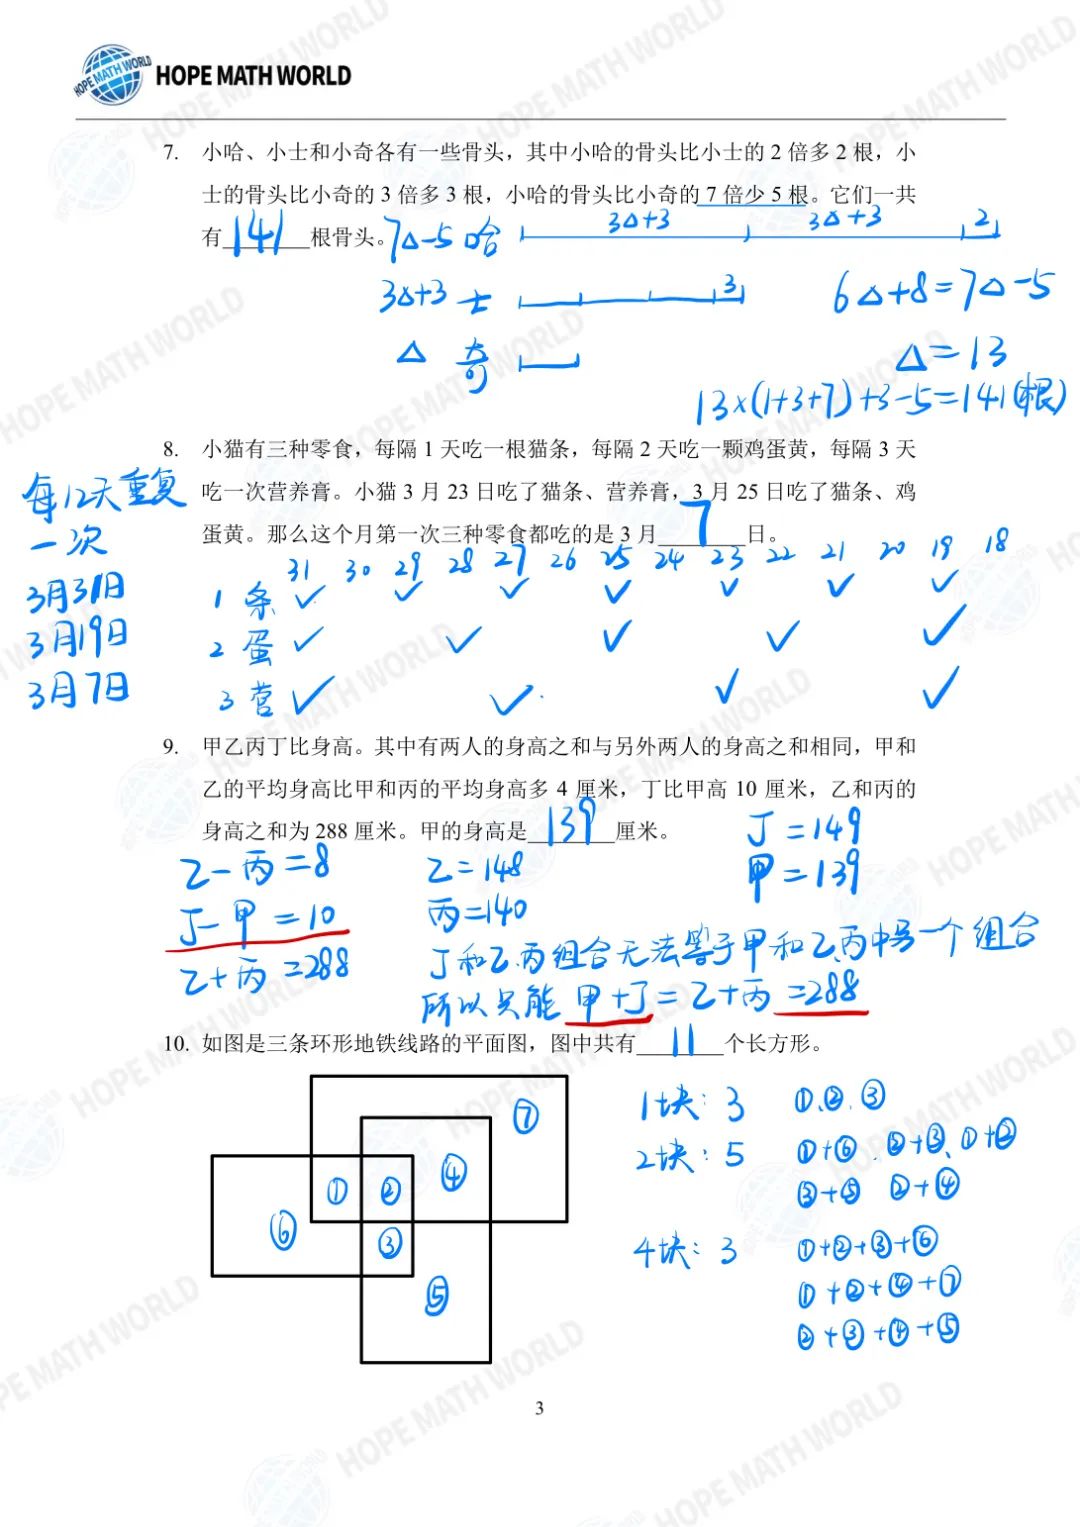 HOPE MATH WORLD
7. 小哈、小士和小奇各有一些骨头，其中小哈的骨头比小士的 2 倍多 2 根，小
士的骨头比小奇的 3 倍多 3 根，小哈的骨头比小奇的 7 倍少 5 根。它们一共
有 141 根骨头。
7△-5 哈 3△+3 3△+3 2
3△+3 士 3
6△+8=7△-5
△ 奇
△=13
13×(1+3+7)+3-5=141(根)
8. 小猫有三种零食，每隔 1 天吃一根猫条，每隔 2 天吃一颗鸡蛋黄，每隔 3 天
吃一次营养膏。小猫 3 月 23 日吃了猫条、营养膏，3 月 25 日吃了猫条、鸡
蛋黄。那么这个月第一次三种零食都吃的是 3 月 7 日。
每12天重复
一次
3月31日
3月19日
3月7日
31 30 29 28 27 26 25 24 23 22 21 20 19 18
1 条 ✓ ✓ ✓ ✓ ✓ ✓ ✓
2 蛋 ✓ ✓ ✓ ✓ ✓
3 营 ✓ ✓ ✓ ✓
9. 甲乙丙丁比身高。其中有两人的身高之和与另外两人的身高之和相同，甲和
乙的平均身高比甲和丙的平均身高多 4 厘米，丁比甲高 10 厘米，乙和丙的
身高之和为 288 厘米。甲的身高是 139 厘米。
乙-丙=8
丁-甲=10
乙+丙=288
乙=148
丙=140
丁=149
甲=139
丁和乙、丙组合无法等于甲和乙、丙中另一个组合
所以只能 甲+丁=乙+丙=288
10. 如图是三条环形地铁线路的平面图，图中共有 11 个长方形。
⑦
① ② ④
⑥ ③
⑤
1块：3 ①、②、③
2块：5 ①+⑥、②+③、①+②
③+⑤ ②+④
4块：3 ①+②+③+⑥
①+②+④+⑦
②+③+④+⑤
3